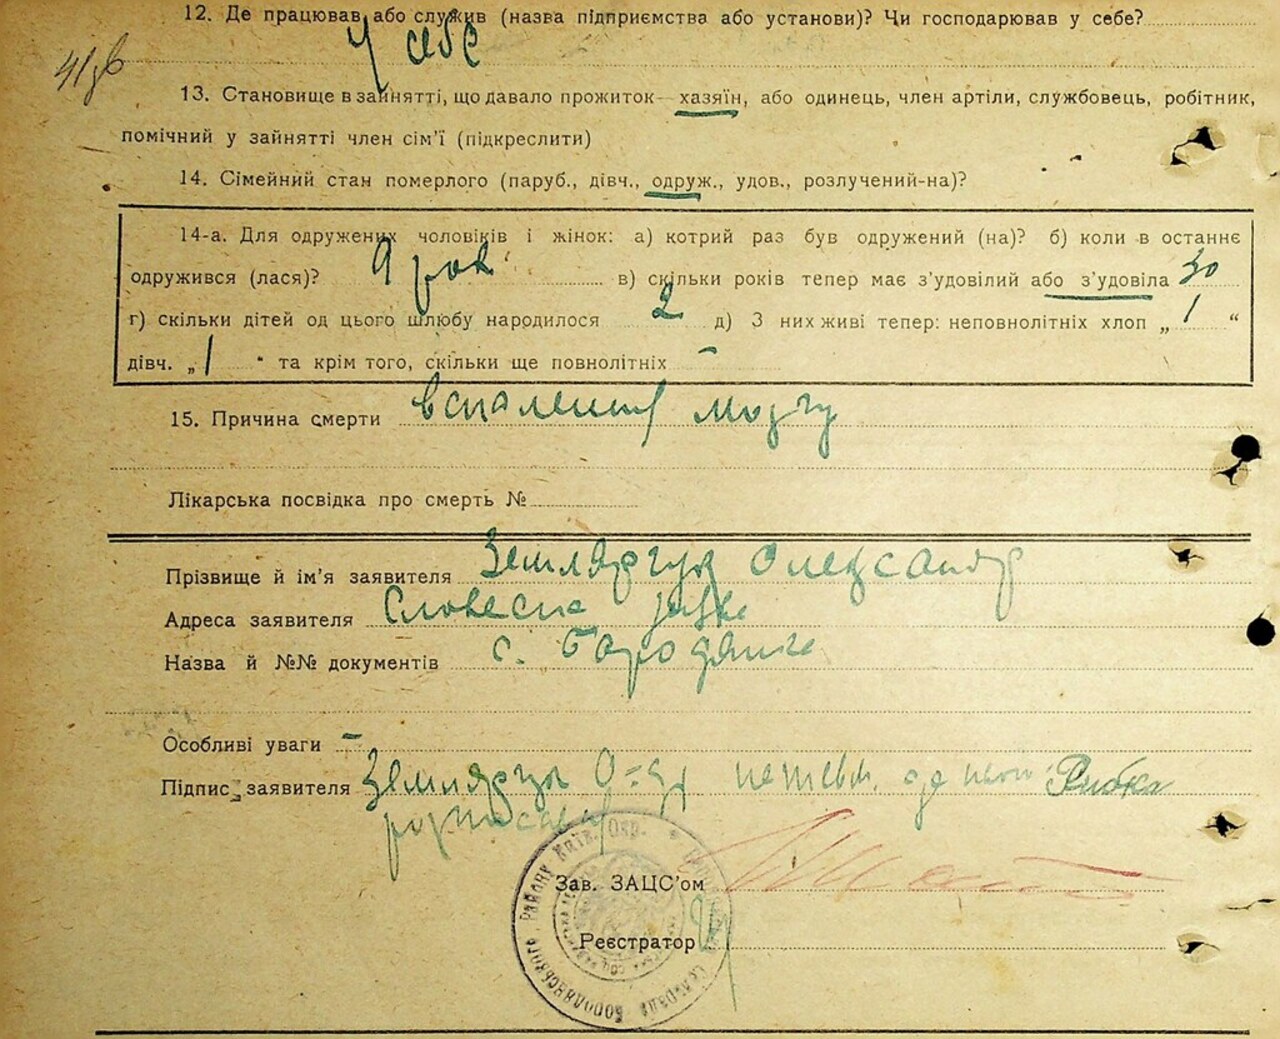 12. Де працював або служив (назва підприємства або установи)? Чи господарював у себе?
У себе
13. Становище в зайнятті, що давало прожиток— хазяїн, або одинець, член артіли, службовець, робітник,
помічний у зайнятті член сім’ї (підкреслити)
14. Сімейний стан померлого (паруб., дівч., одруж., удов., розлучений-на)?
14-а. Для одружених чоловіків і жінок: а) котрий раз був одружений (на)? б) коли в останнє
одружився (лася)? 9 рок в) скільки років тепер має з’удовілий або з’удовіла 30
г) скільки дітей од цього шлюбу народилося 2 д) З них живі тепер: неповнолітніх хлоп „ 1 “
дівч. „ 1 “ та крім того, скільки ще повнолітніх -
15. Причина смерти воспаления мозгу
Лікарська посвідка про смерть №
Прізвище й ім’я заявителя Олександр
Адреса заявителя
Назва й №№ документів с. Бородянка
Особливі уваги -
Підпис заявителя О-др Рибка
розписався
Зав. ЗАЦС’ом
Реєстратор